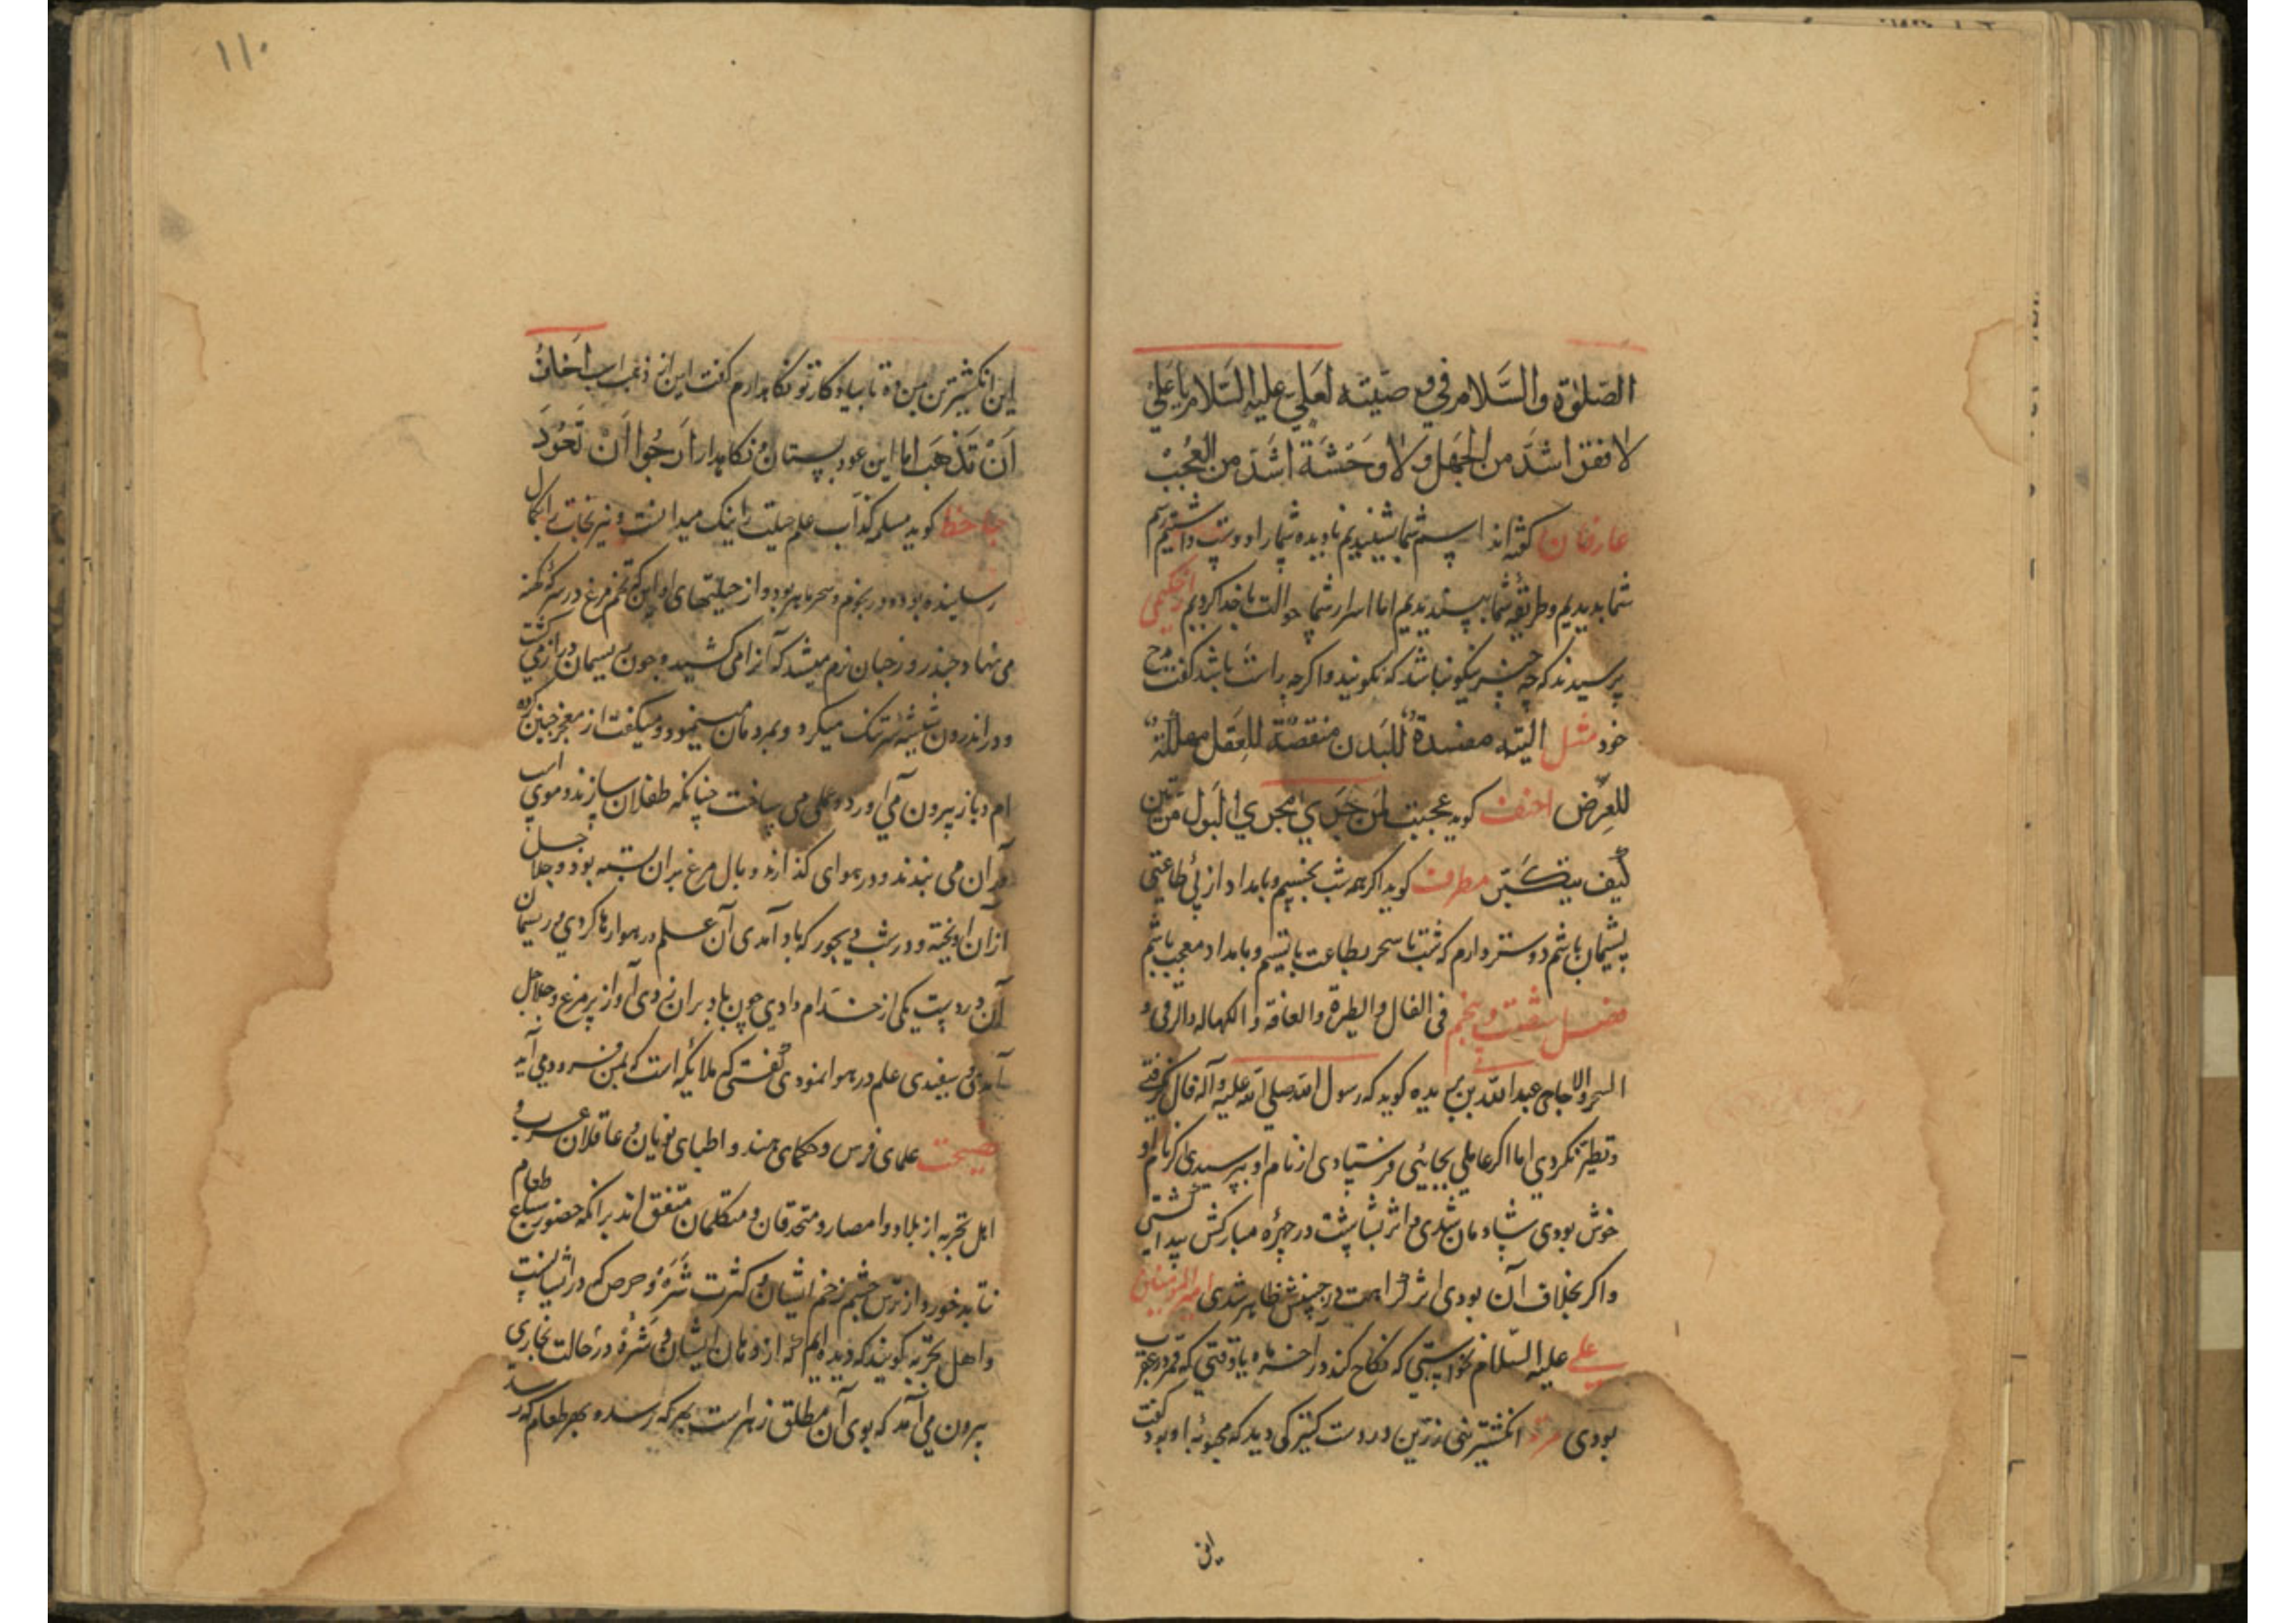 الصلوة والسلام في وصيته لعلي عليه السلام يا علي
لا فقر اشد من الجهل ولا وحشة اشد من العجب
عارفان گفته اند اسم شما شنیدیم نادیده شما را دوست داشتیم رسم
شما بدیدیم وطریقه شما بپسندیدیم اما اسرار شما حوالت با خدا کردیم از حکیمی
پرسیدند که چه چیز نیکو نباشد که نکویند واکرچه راست باشد گفت مدح
خود مثل التیه مفسدة للبدن منقصة للعقل مهلکة
للعرض احنف کوید عجبت لمن جری مجری البول مرتین
کیف یتکبر مطرف کوید اکر همه شب بخسپم وبامداد از پی طاعتی
پشیمان باشم دوستر دارم که شب تا سحر بطاعت بایستم وبامداد معجب باشم
فصل شصت وپنجم فی الفال والطیرة والعافه والکهاله والرقی و
السحر والاحاجی عبدالله بن بریده کوید که رسول الله صلی الله علیه وآله فال کرفتی
وتطیر نکردی اما اکر عاملی بجائی فرستادی از نام او بپرسیدی اکر نام او
خوش بودی شادمان شدی و اثر بشاشت در چهره مبارکش پیدا کشتی
واکر بخلاف آن بودی اثر کراهت در جبینش ظاهر شدی امیر المؤمنین
علی علیه السلام نخواستی که نکاح کند در آخر ماه یا وقتی که قمر در عقرب
بودی مردی انکشتری زرین در دست کنیزکی دید که محبوبه او بود گفت
این
۱۱۰
این انکشترین بمن ده تا بیادکار تو نکاه دارم گفت این از ذهب است اخاف
ان تذهب اما این عود بستان و نکاهدار ارجوا ان تعود
جاحظ کوید مسیلمه کذاب علم حیلت را نیک میدانست ونیرنجات را بکمال
رسانیده بوده ودر نجوم وسحر ماهر بود واز حیلتهای او این که تخم مرغ در سرکه کهنه
می نهاد وچند روز چنان نرم میشد که آنرا می کشید وچون ریسمان دراز می کشت
ودر اندرون شیشه سرتنک میکرد وبمردمان مینمود ومیکفت از معجز چنین کرده
ام وباز بیرون می آورد وعلمی می ساخت چنانکه طفلان سازند وموی اسب
در آن می بندند ودر هوا می کذارند وبال مرغ بران بسته بود وجلاجل
از آن آویخته ودر شب دیجور که باد آمدی آن علم در هوا رها کردی و ریسمان
آن در دست یکی از خدام دادی چون باد بران زدی آواز پر مرغ وجلاجل
آمدی و سفیدی علم در هوا نمودی گفتی که ملائکه است که بمن فرود می آید
نصیحت علمای فرس وحکمای هند واطبای یونان و عاقلان عرب و
اهل تجربه از بلاد وامصار ومتحدقان ومتکلمان متفق اند برانکه حضور سباع طعام
نباید خورد از ترس چشم زخم ایشان و کثرت شره وحرص که در ایشانست
واهل تجربه کویند که دیده ایم که از دهان ایشان و شره در حالت بخاری
بیرون می آمد که بوی آن مطلق زهر است بهر که رسد و بهر طعام که رسد